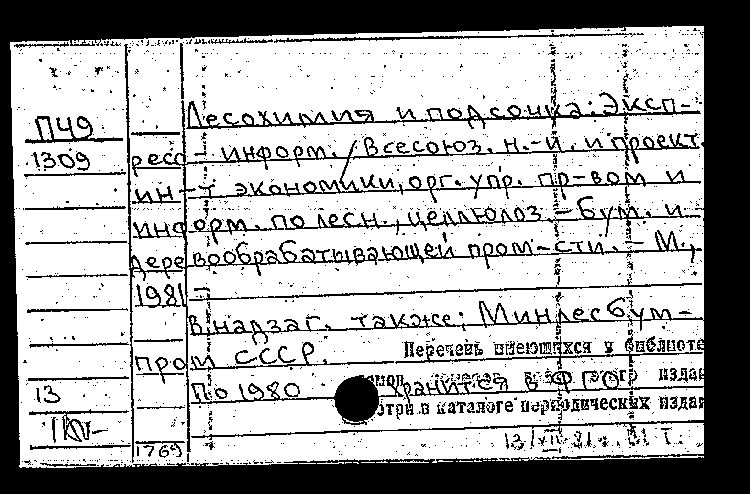 Лесохимия и подсочка: Эксп-
П49
1309 ресс - информ. / Всесоюз. н.-и. и проект.
ин-т экономики, орг. упр. пр-вом и
информ. по лесн., целлюлоз.-бум. и
деревообрабатывающей пром-сти. - М.,
1981 -
В надзаг. также: Минлесбум-
пром СССР.
Перечень имеющихся у библиоте
13 По 1980 хранится в ФГО издан
отри в каталоге периодических издан
1769